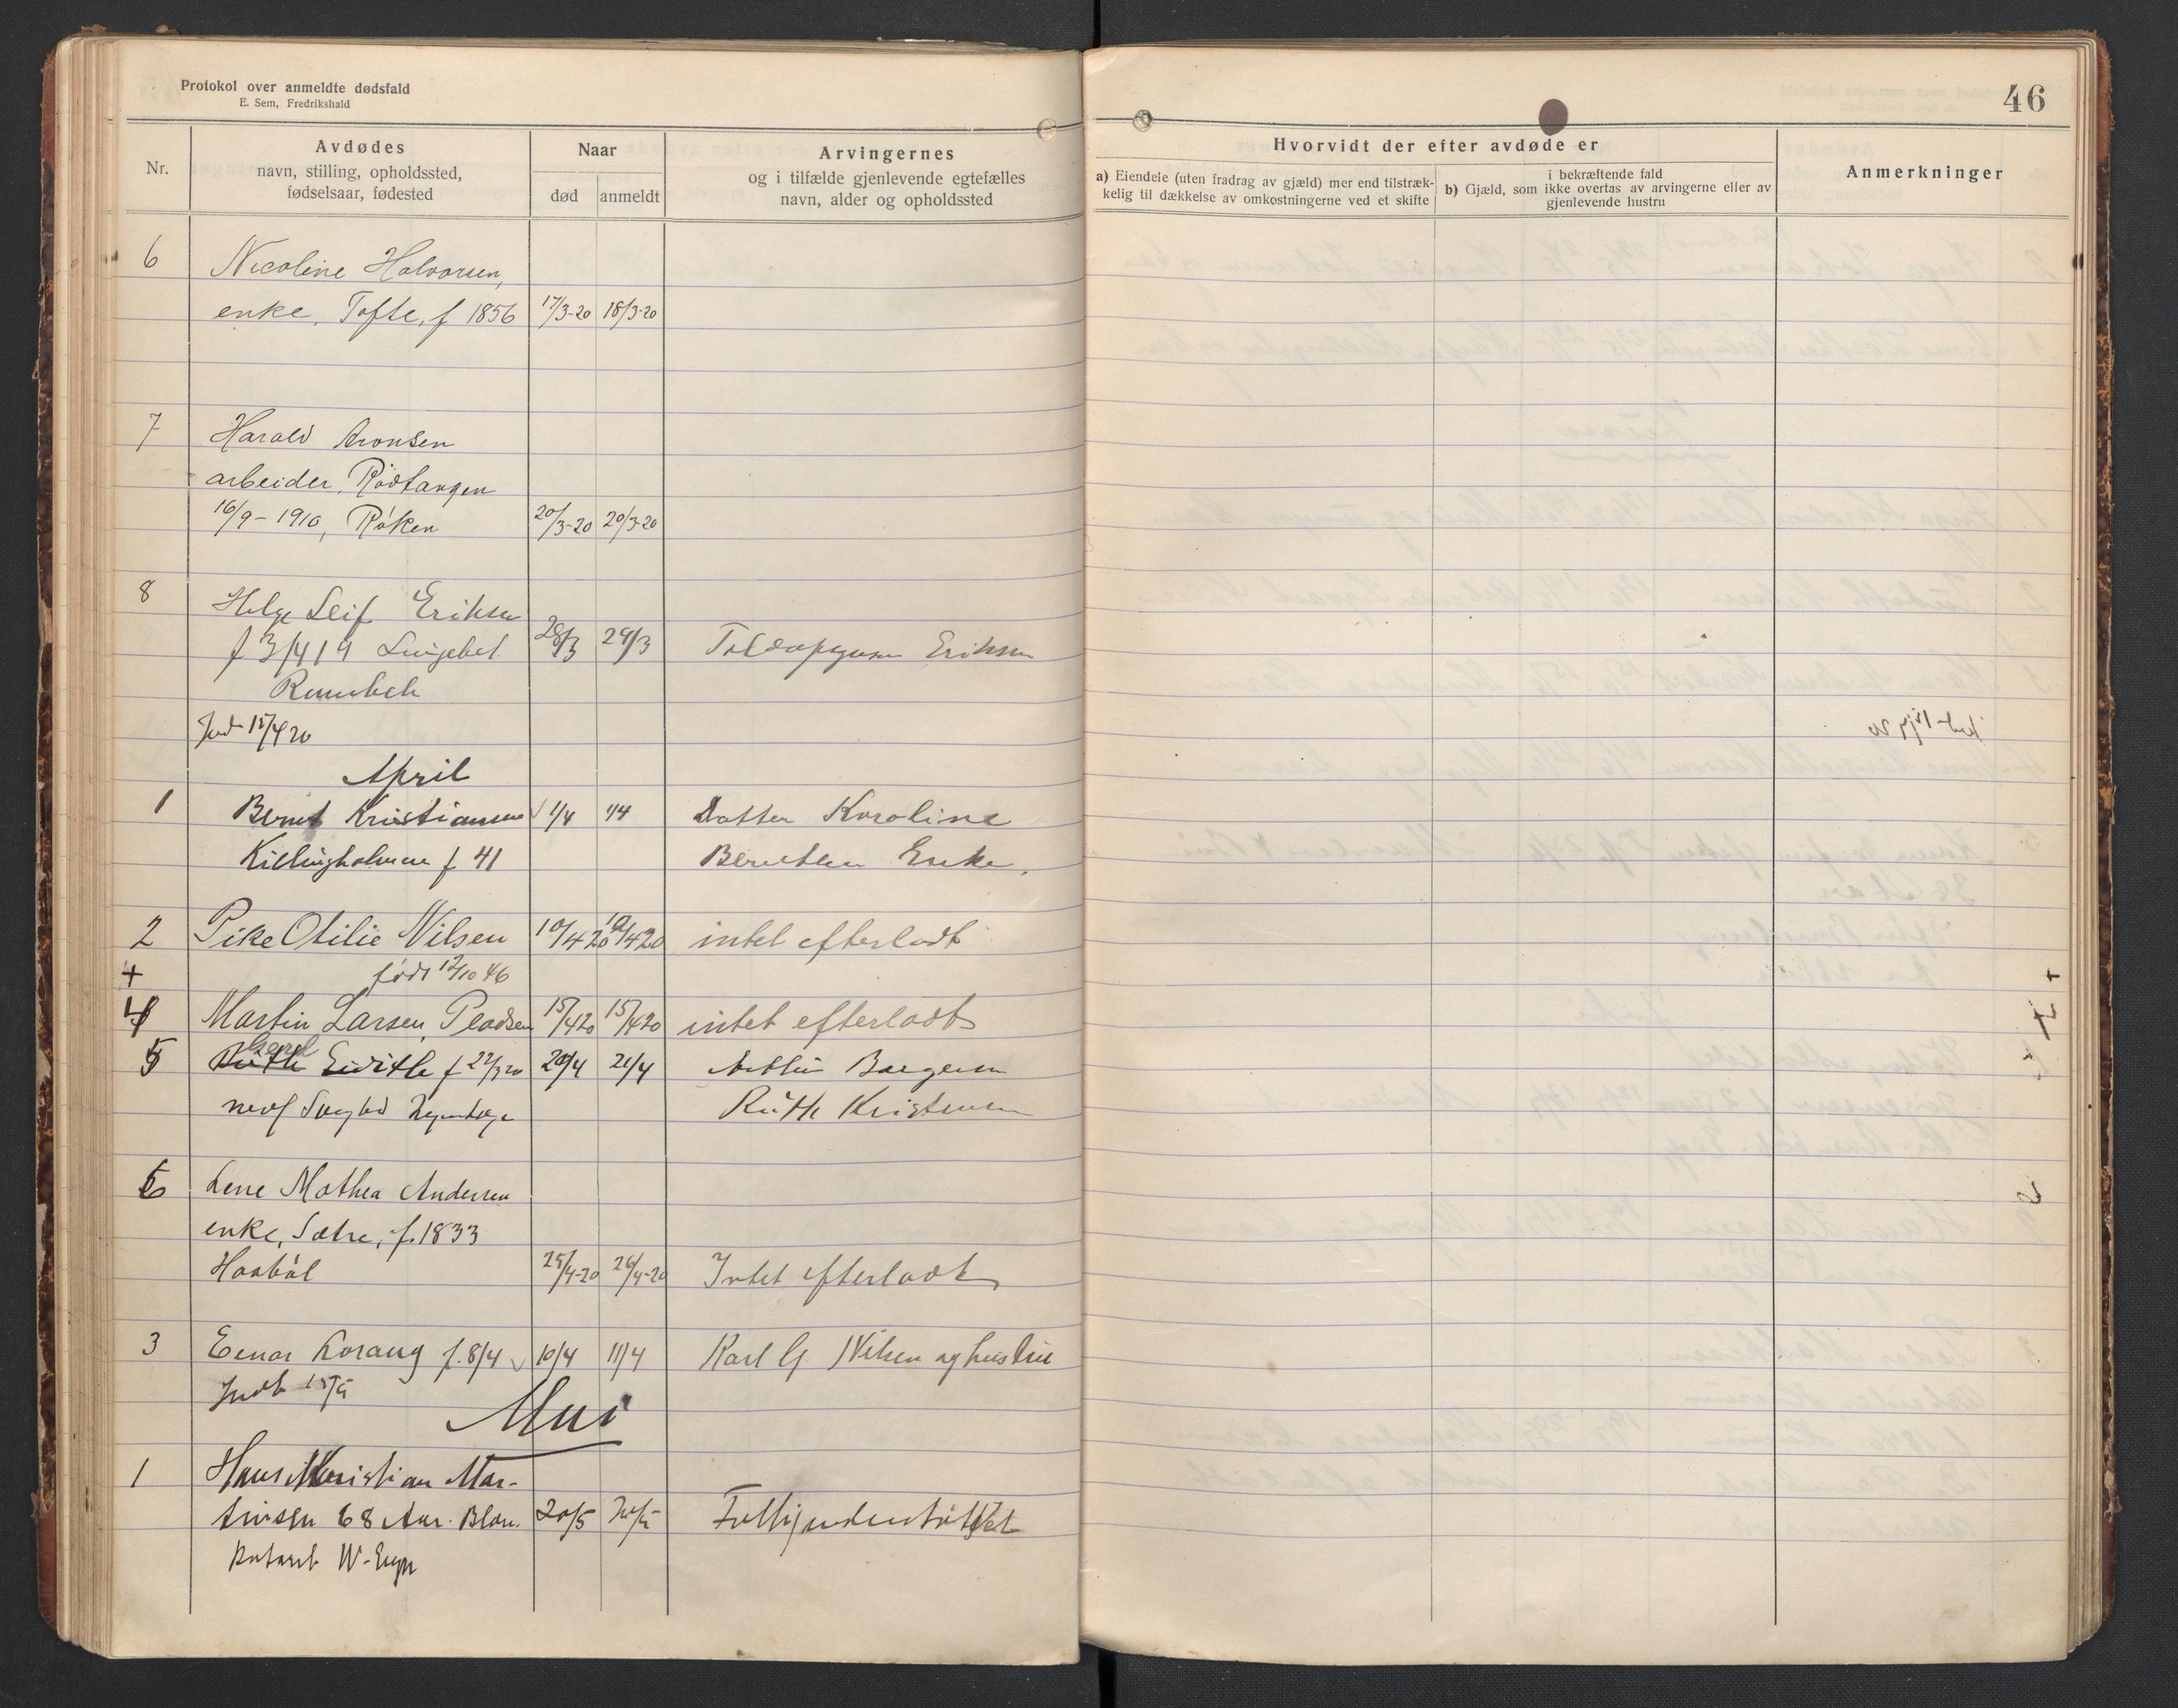 Protokol over anmeldte dødsfald
E. Sem, Fredrikshald
46
Nr.
Avdødes
navn, stilling, opholdssted,
fødselsaar, fødested
Naar
død anmeldt
Arvingernes
og i tilfælde gjenlevende egtefælles
navn, alder og opholdssted
Hvorvidt der efter avdøde er
a) Eiendele (uten fradrag av gjæld) mer end tilstræk-
kelig til dækkelse av omkostningerne ved et skifte
i bekræftende fald
b) Gjæld, som ikke overtas av arvingerne eller av
gjenlevende hustru
Anmerkninger
6 Nicoline Halvorsen,
enke, Tofte, f 1856 17/3-20 18/3-20
7 Harald Aronsen
arbeider, Rødtangen
16/9-1910, Røken 20/3-20 20/3-20
8 Helge Leif Eriksen
f 3/4 19 28/3 29/3 Eriksen
15/4 20
April
1 Bernt Kristiansen 1/4 1/4 Datter Karoline
Killingholmen f 41 Enke,
2 Pike Otilie Nilsen 10/4 20 10/4 20 intet efterladt
født 12/10 46
4 Martin Larsen, 15/4 20 15/4 20 intet efterladt
5 f 22/3 20 20/4 21/4
Ruth Kristensen
6 Lene Mathea Andersen
enke, Sætre, f. 1833
Haabøl 25/4-20 26/4-20 Intet efterladt
3 Einar f. 8/4 10/4 11/4 Karl G. Nilsen og hustru
Indb 15/5
Mai
1 Hans Kristian Mar-
tinsen 68 Aar. 20/5 20/5